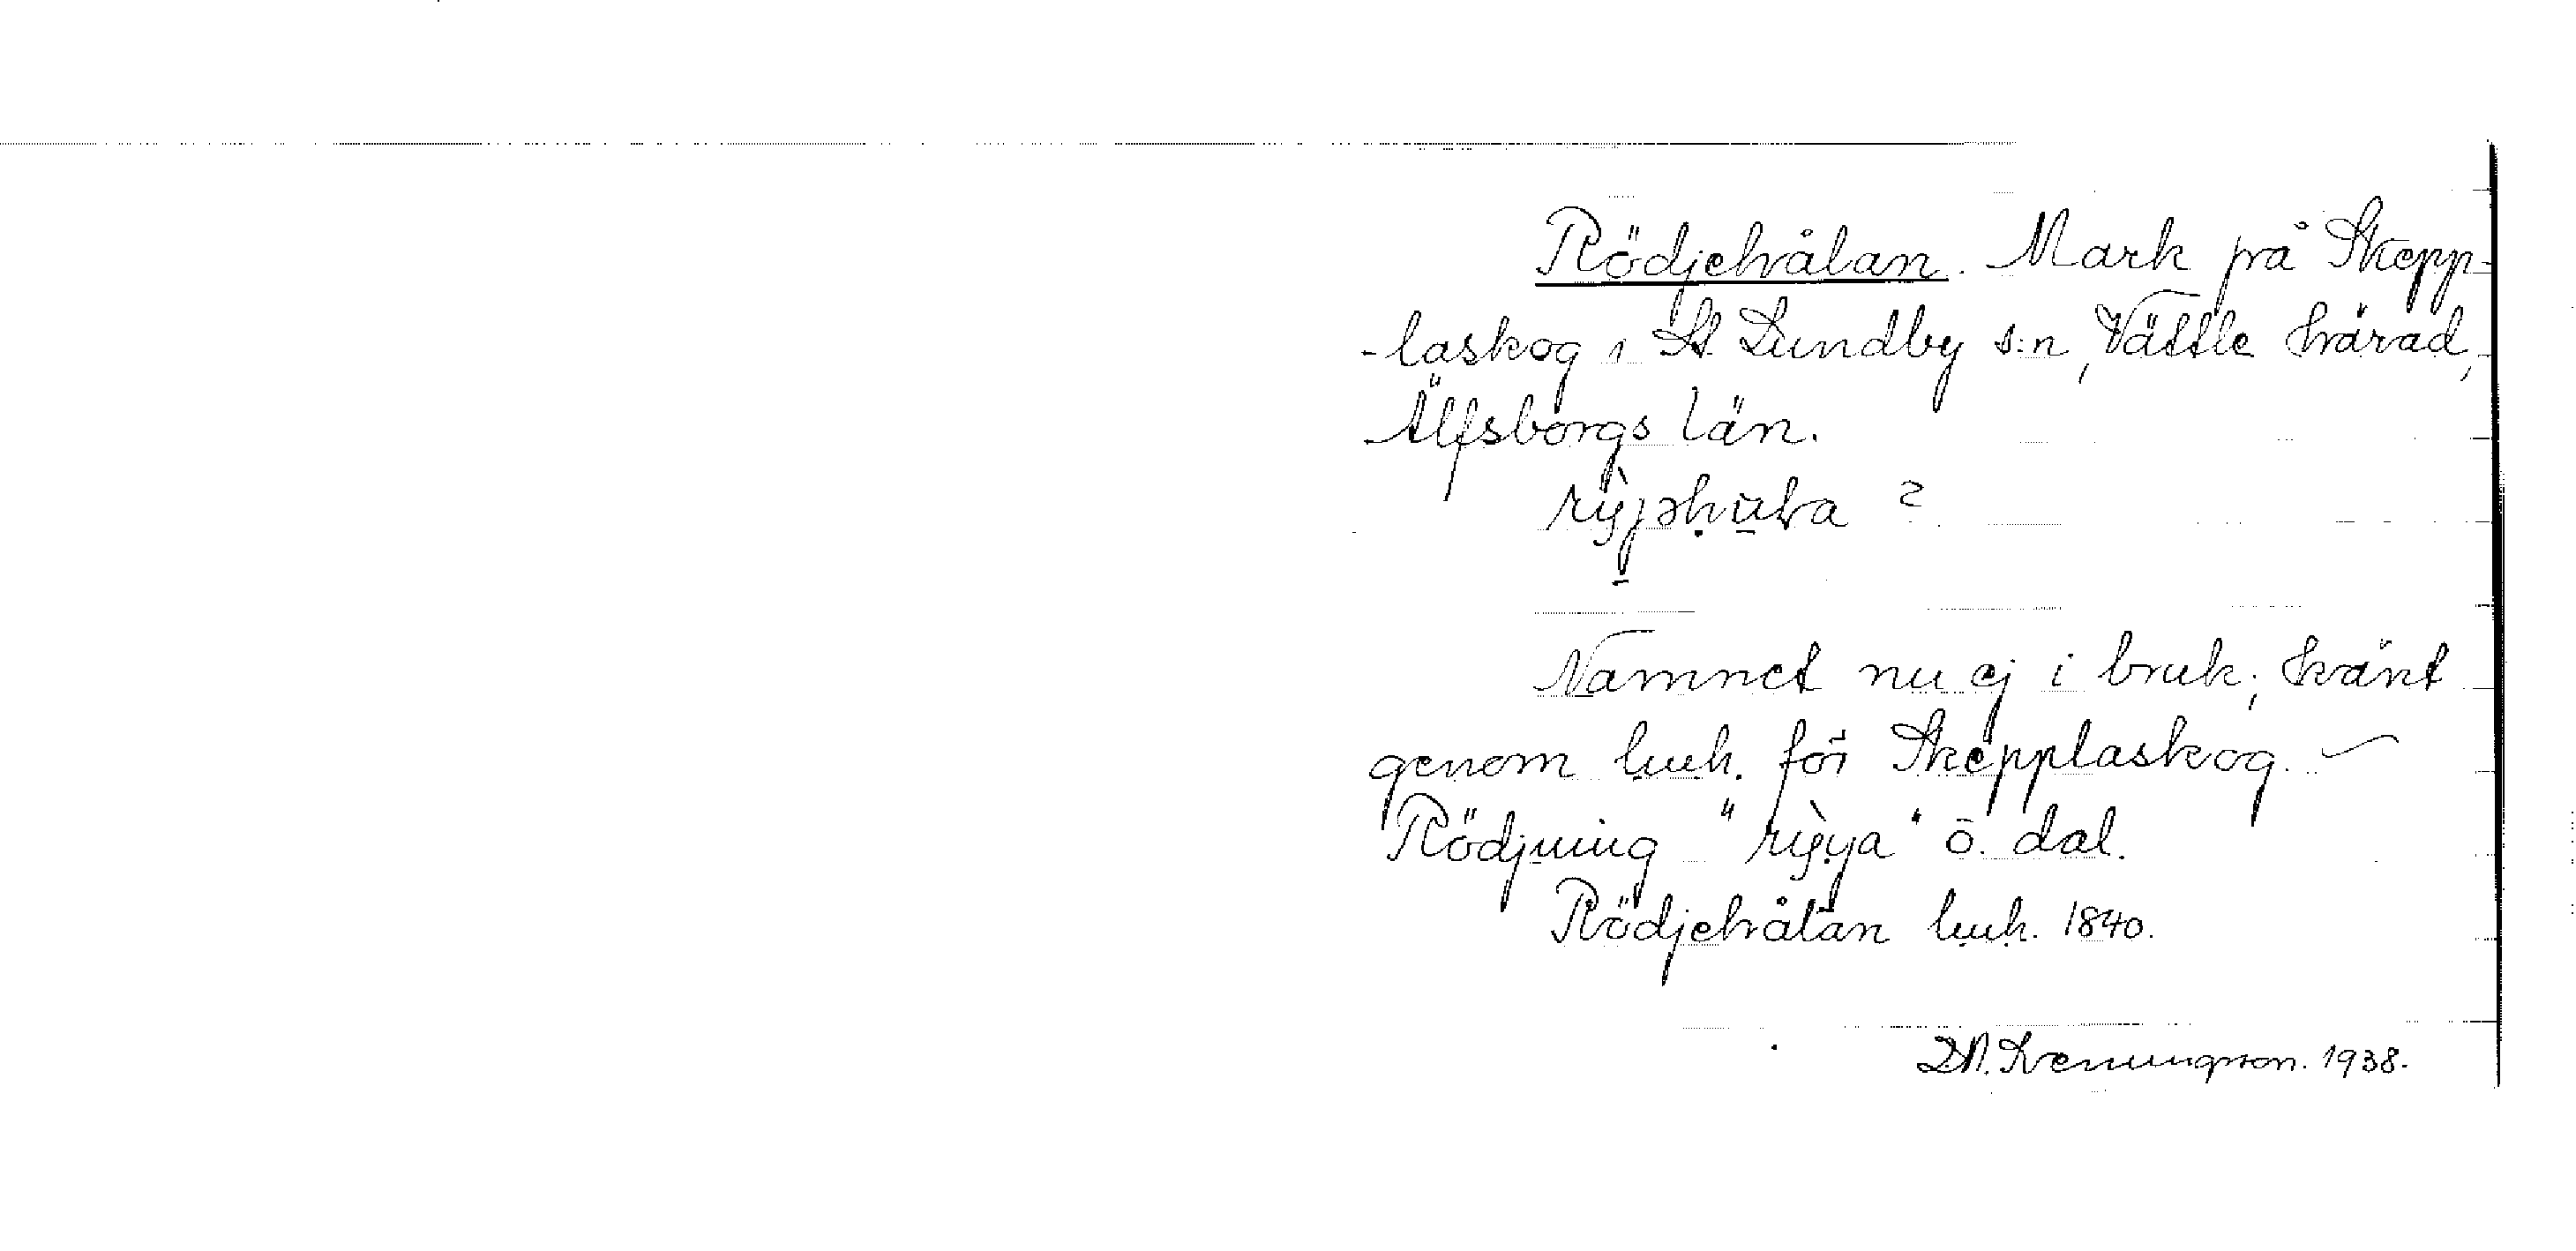 Rödjehålan. Mark på Skepp-
-laskog i St. Lundby s:n, Vättle härad,
Älfsborgs län.
Namnet nu ej i bruk; känt
genom huh. för Skepplaskog. –
Rödjning "rỳya" o. dal.
Rödjehålan huh. 1840.
1938.